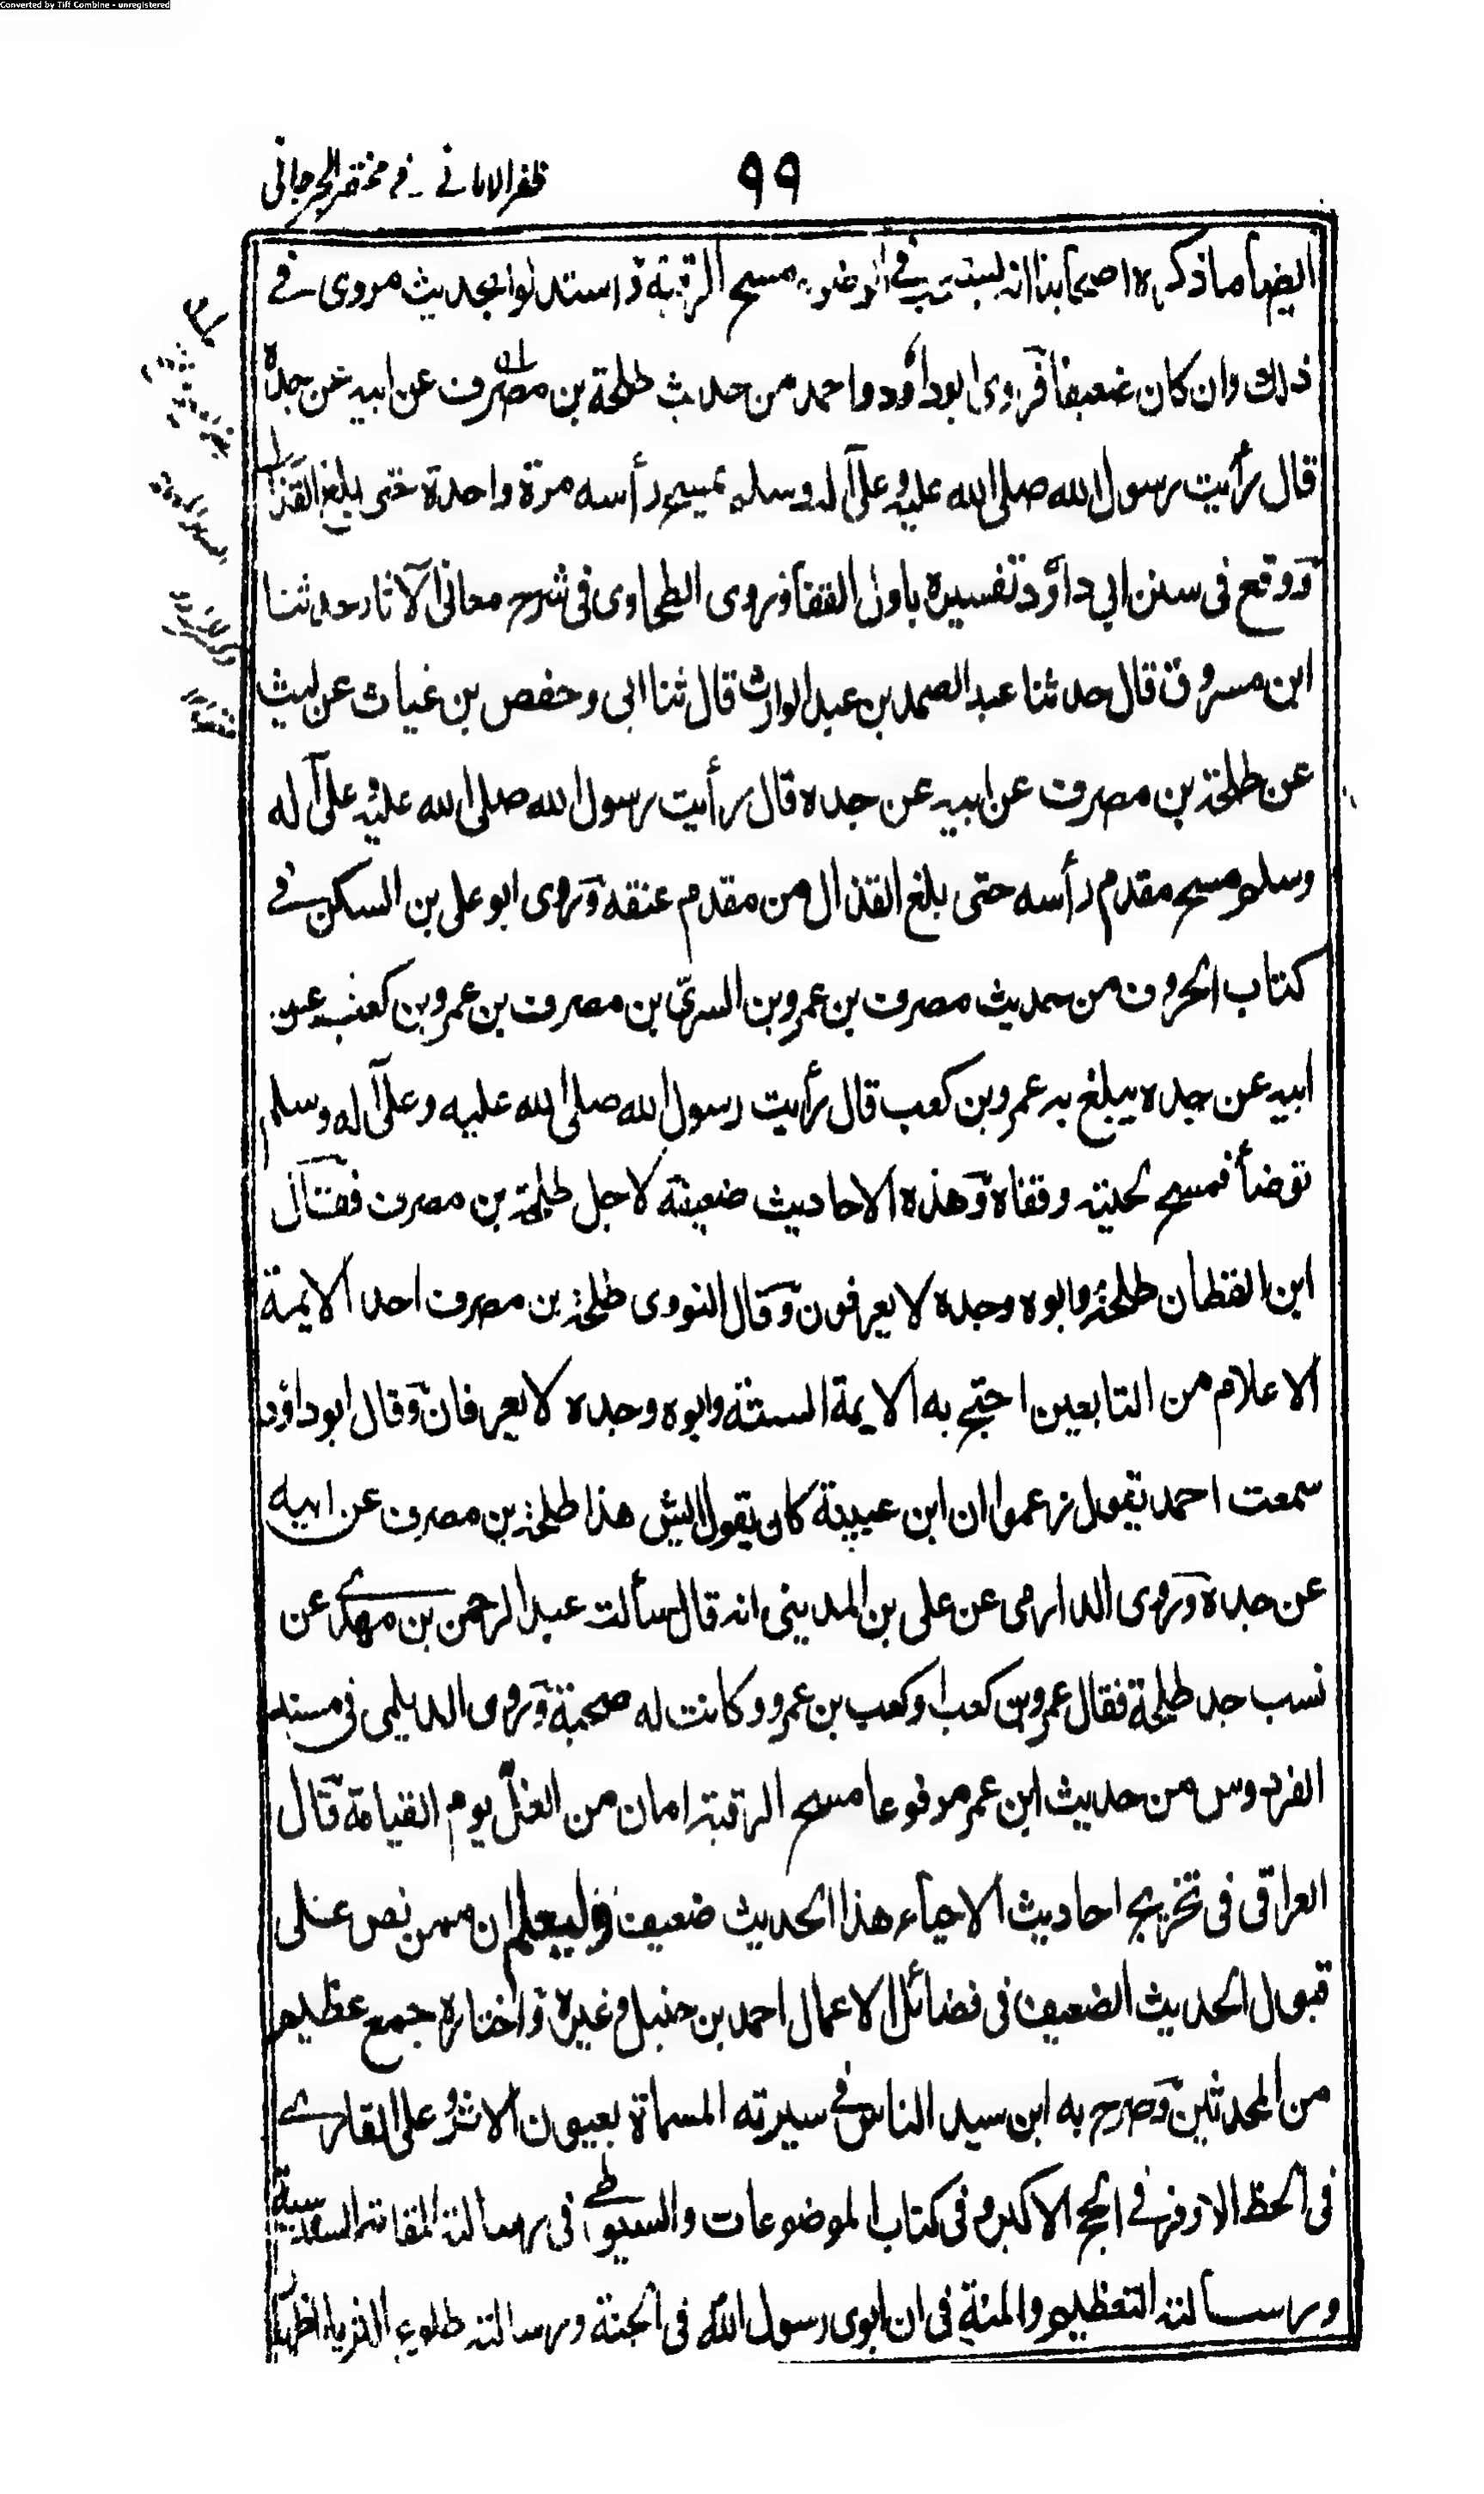 Converted by Tiff Combine - unregistered
٩٩ ظفر الامانے ۔ فے مختصر الجرجانی
ایضا ما ذکره اصحابنا انه یستحب فے الوضوء مسح الرقبة و استدلوا بحدیث مروی فے
ذلك وان کان ضعیفا فروی ابوداؤد واحمد من حدیث طلحة بن مصرف عن ابیه عن جده
قال رأیت رسول الله صلی الله علیه وعلی آله وسلم یمسح رأسه مرة واحدة حتی بلغ القذال
ووقع فی سنن ابی داؤد تفسیره باول القفا وروی الطحاوی فی شرح معانی الآثار حدثنا
ابن مسروق قال حدثنا عبد الصمد بن عبد الوارث قال ثنا ابی وحفص بن غیاث عن لیث
عن طلحة بن مصرف عن ابیه عن جده قال رأیت رسول الله صلی الله علیه وعلی آله
وسلم مسح مقدم رأسه حتی بلغ القذال من مقدم عنقه وروی ابو علی بن السکن فے
کتاب الحروف من حدیث مصرف بن عمرو بن السری بن مصرف بن عمرو بن کعب عن
ابیه عن جده یبلغ به عمرو بن کعب قال رأیت رسول الله صلی الله علیه وعلی آله وسلم
توضأ فمسح لحیته وقفاه وهذه الاحادیث ضعیفة لاجل طلحة بن مصرف فقال
ابن القطان طلحة وابوه وجده لا یعرفون وقال النووی طلحة بن مصرف احد الایمة
الاعلام من التابعین احتج به الایمة الستة وابوه وجده لا یعرفان وقال ابوداؤد
سمعت احمد یقول زعموا ان ابن عیینة کان یقول ایش هذا طلحة بن مصرف عن ابیه
عن جده وروی الدارمی عن علی بن المدینی انه قال سألت عبد الرحمن بن مهدی عن
نسب جد طلحة فقال عمرو بن کعب او کعب بن عمرو وکانت له صحبة وروی الدیلمی فی مسند
الفردوس من حدیث ابن عمر مرفوعا مسح الرقبة امان من الغل یوم القیامة قال
العراقی فی تخریج احادیث الاحیاء هذا الحدیث ضعیف ولیعلم ان ممن نص علی
قبول الحدیث الضعیف فی فضائل الاعمال احمد بن حنبل وغیره واختاره جمع عظیم
من المحدثین وصرح به ابن سید الناس فے سیرته المسماة بعیون الاثر وعلی القارے
فی الحظ الاوفر فے الحج الاکبر وفی کتاب الموضوعات والسیوطے فی رسالته المقامة السندسیة
ورسالته التعظیم والمنة فی ان ابوی رسول الله فی الجنة ورسالته طلوع الثریا باظهار